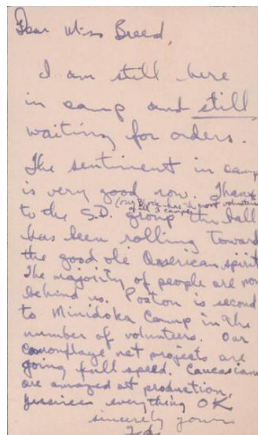 Dear Miss Breed,
I am still here
in camp and still
waiting for orders.
The sentiment in camp
is very good now. Thanks
to the S.D. group the ball
has been rolling toward
the good ole American spirit
The majority of people are now
behind us. Poston is second
to Minidoka Camp in the
number of volunteers. Our
camouflage net projects are
going full speed. Caucasians
are amazed at production.
everything OK
sincerely yours